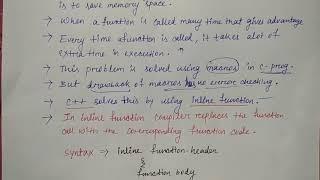 is to save memory space.
→ When a function is called many time that gives advantage
→ Every time afunction is called, it takes alot of
extra time in execution.
→ This problem is solved using macros in c-prog.
→ But drawback of macros has no error checking.
→ C++ solves this by using Inline function.
→ In inline function compiler replaces the function
call with the corresponding function code.
Syntax → inline function-header
{
function body